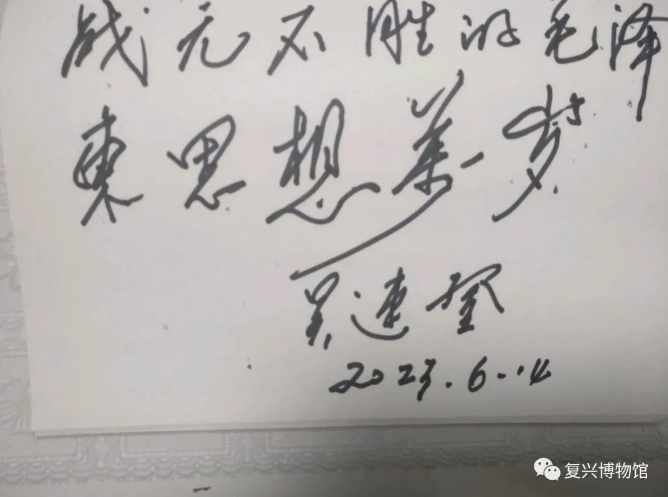 战无不胜的毛泽
東思想萬岁
吴连登
2023.6.14
复兴博物馆